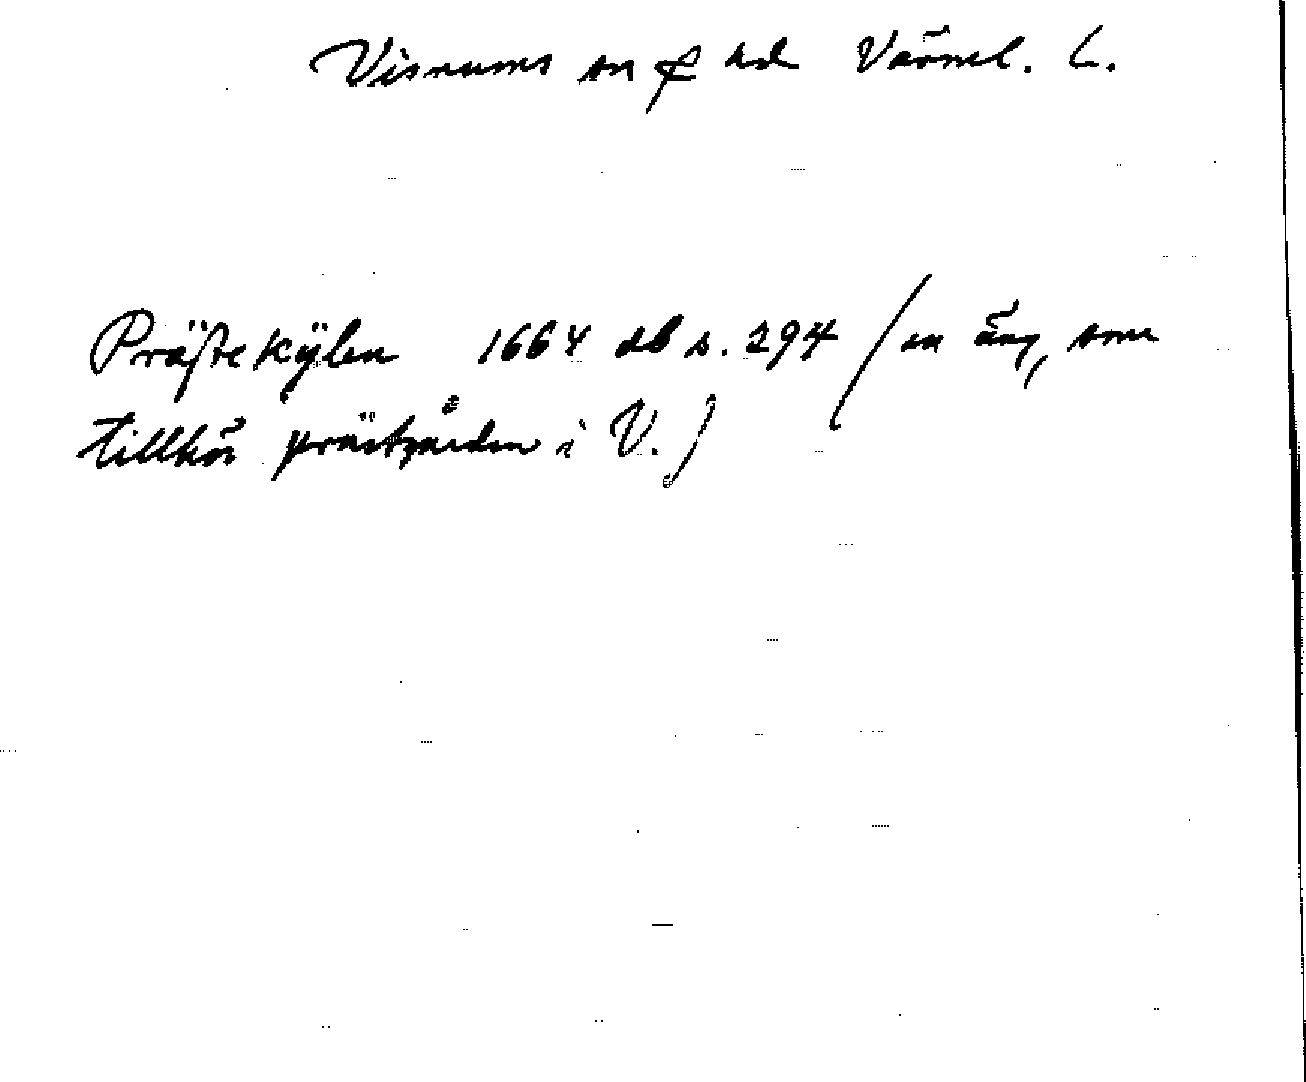 Visnums sn o hd Värml. L.
Präste Kÿlen 1664 db s. 294 (en äng, som
tillhör prästgården i V.)